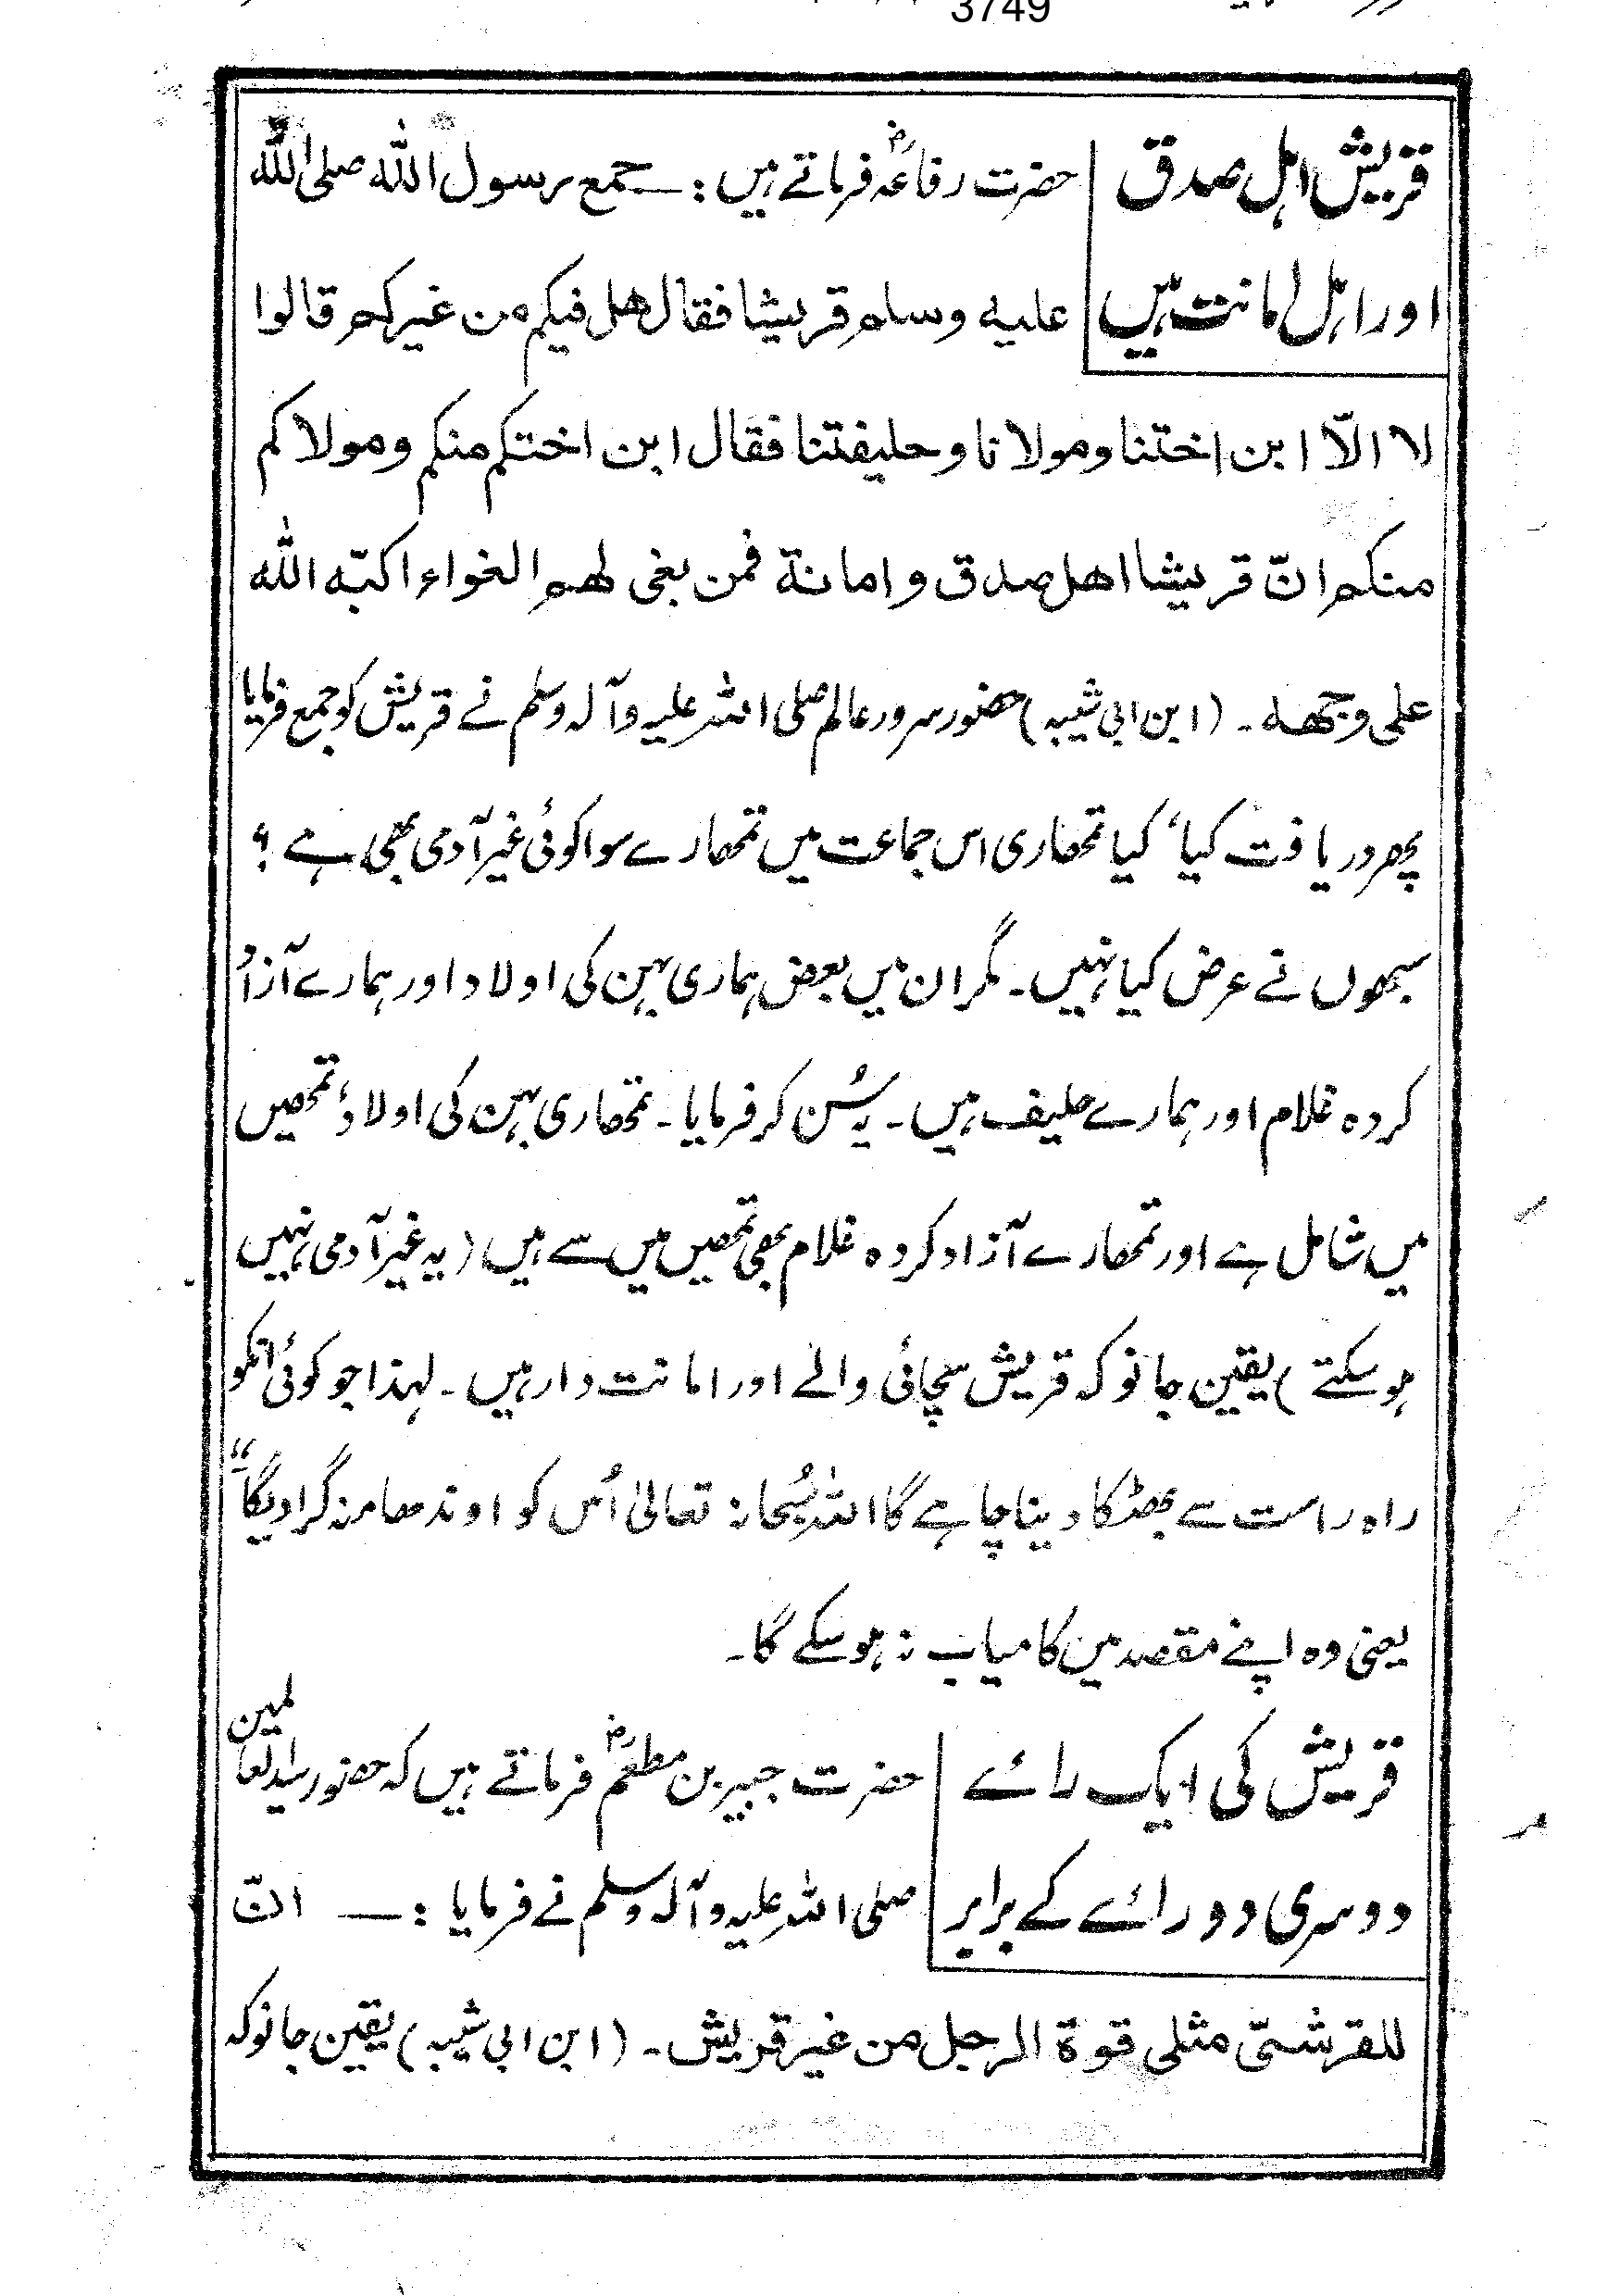 3749
قریش اہل صدق
اور اہل امانت ہیں
حضرت رفاعہؓ فرماتے ہیں :— جمع رسول اللہ صلی اللہ
علیہ وسلم قریشا فقال هل فیکم من غیرکم قالوا
لا الّا ابن اختنا ومولانا وحلیفتنا فقال ابن اختکم منکم ومولاکم
منکم انّ قریشا اهل صدق وامانة فمن بغی لهم الغواء اکبّه الله
علی وجهه ۔ (ابن ابی شیبہ) حضور سرور عالم صلی اللہ علیہ وآلہ وسلم نے قریش کو جمع فرمایا
پھر دریافت کیا، کیا تمھاری اس جماعت میں تمھارے سوا کوئی غیر آدمی بھی ہے ؟
سبھوں نے عرض کیا نہیں ۔ مگر ان میں بعض ہماری بہن کی اولاد اور ہمارے آزاد
کردہ غلام اور ہمارے حلیف ہیں ۔ یہ سُن کر فرمایا ۔ تمھاری بہن کی اولاد، تمھیں
میں شامل ہے اور تمھارے آزاد کردہ غلام بھی تمھیں میں سے ہیں (یہ غیر آدمی نہیں
ہو سکتے) یقین جانو کہ قریش سچائی والے اور امانت دار ہیں ۔ لہذا جو کوئی انکو
راہ راست سے بھٹکا دینا چاہے گا اللہ سُبحانہٗ تعالیٰ اُس کو اوندھا منہ گرا دیگا"
یعنی وہ اپنے مقصد مین کامیاب نہ ہو سکے گا ۔
قریش کی ایک رائے
دوسری دو رائے کے برابر
حضرت جبیر بن مطعمؓ فرماتے ہیں کہ حضور سید العالمین
صلی اللہ علیہ وآلہ وسلم نے فرمایا :— انّ
للقرشیّ مثلی قوة الرجل من غیر قریش ۔ (ابن ابی شیبہ) یقین جانو کہ